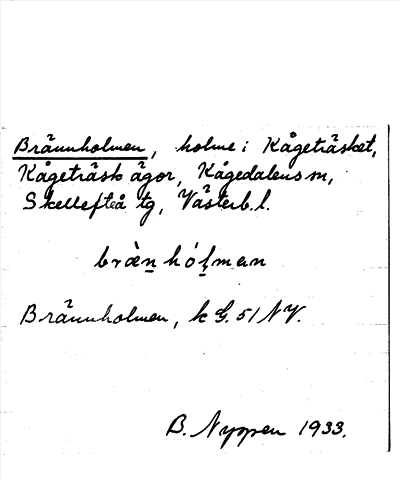 Brännholmen, holme i Kågeträsket,
Kågeträsk ägor, Kågedalens m,
Skellefteå tg, Västerb. l.
bræ̀n̠hól̠mɐn
Brännholmen, k G. 51 NV.
B. Nyppen 1933.